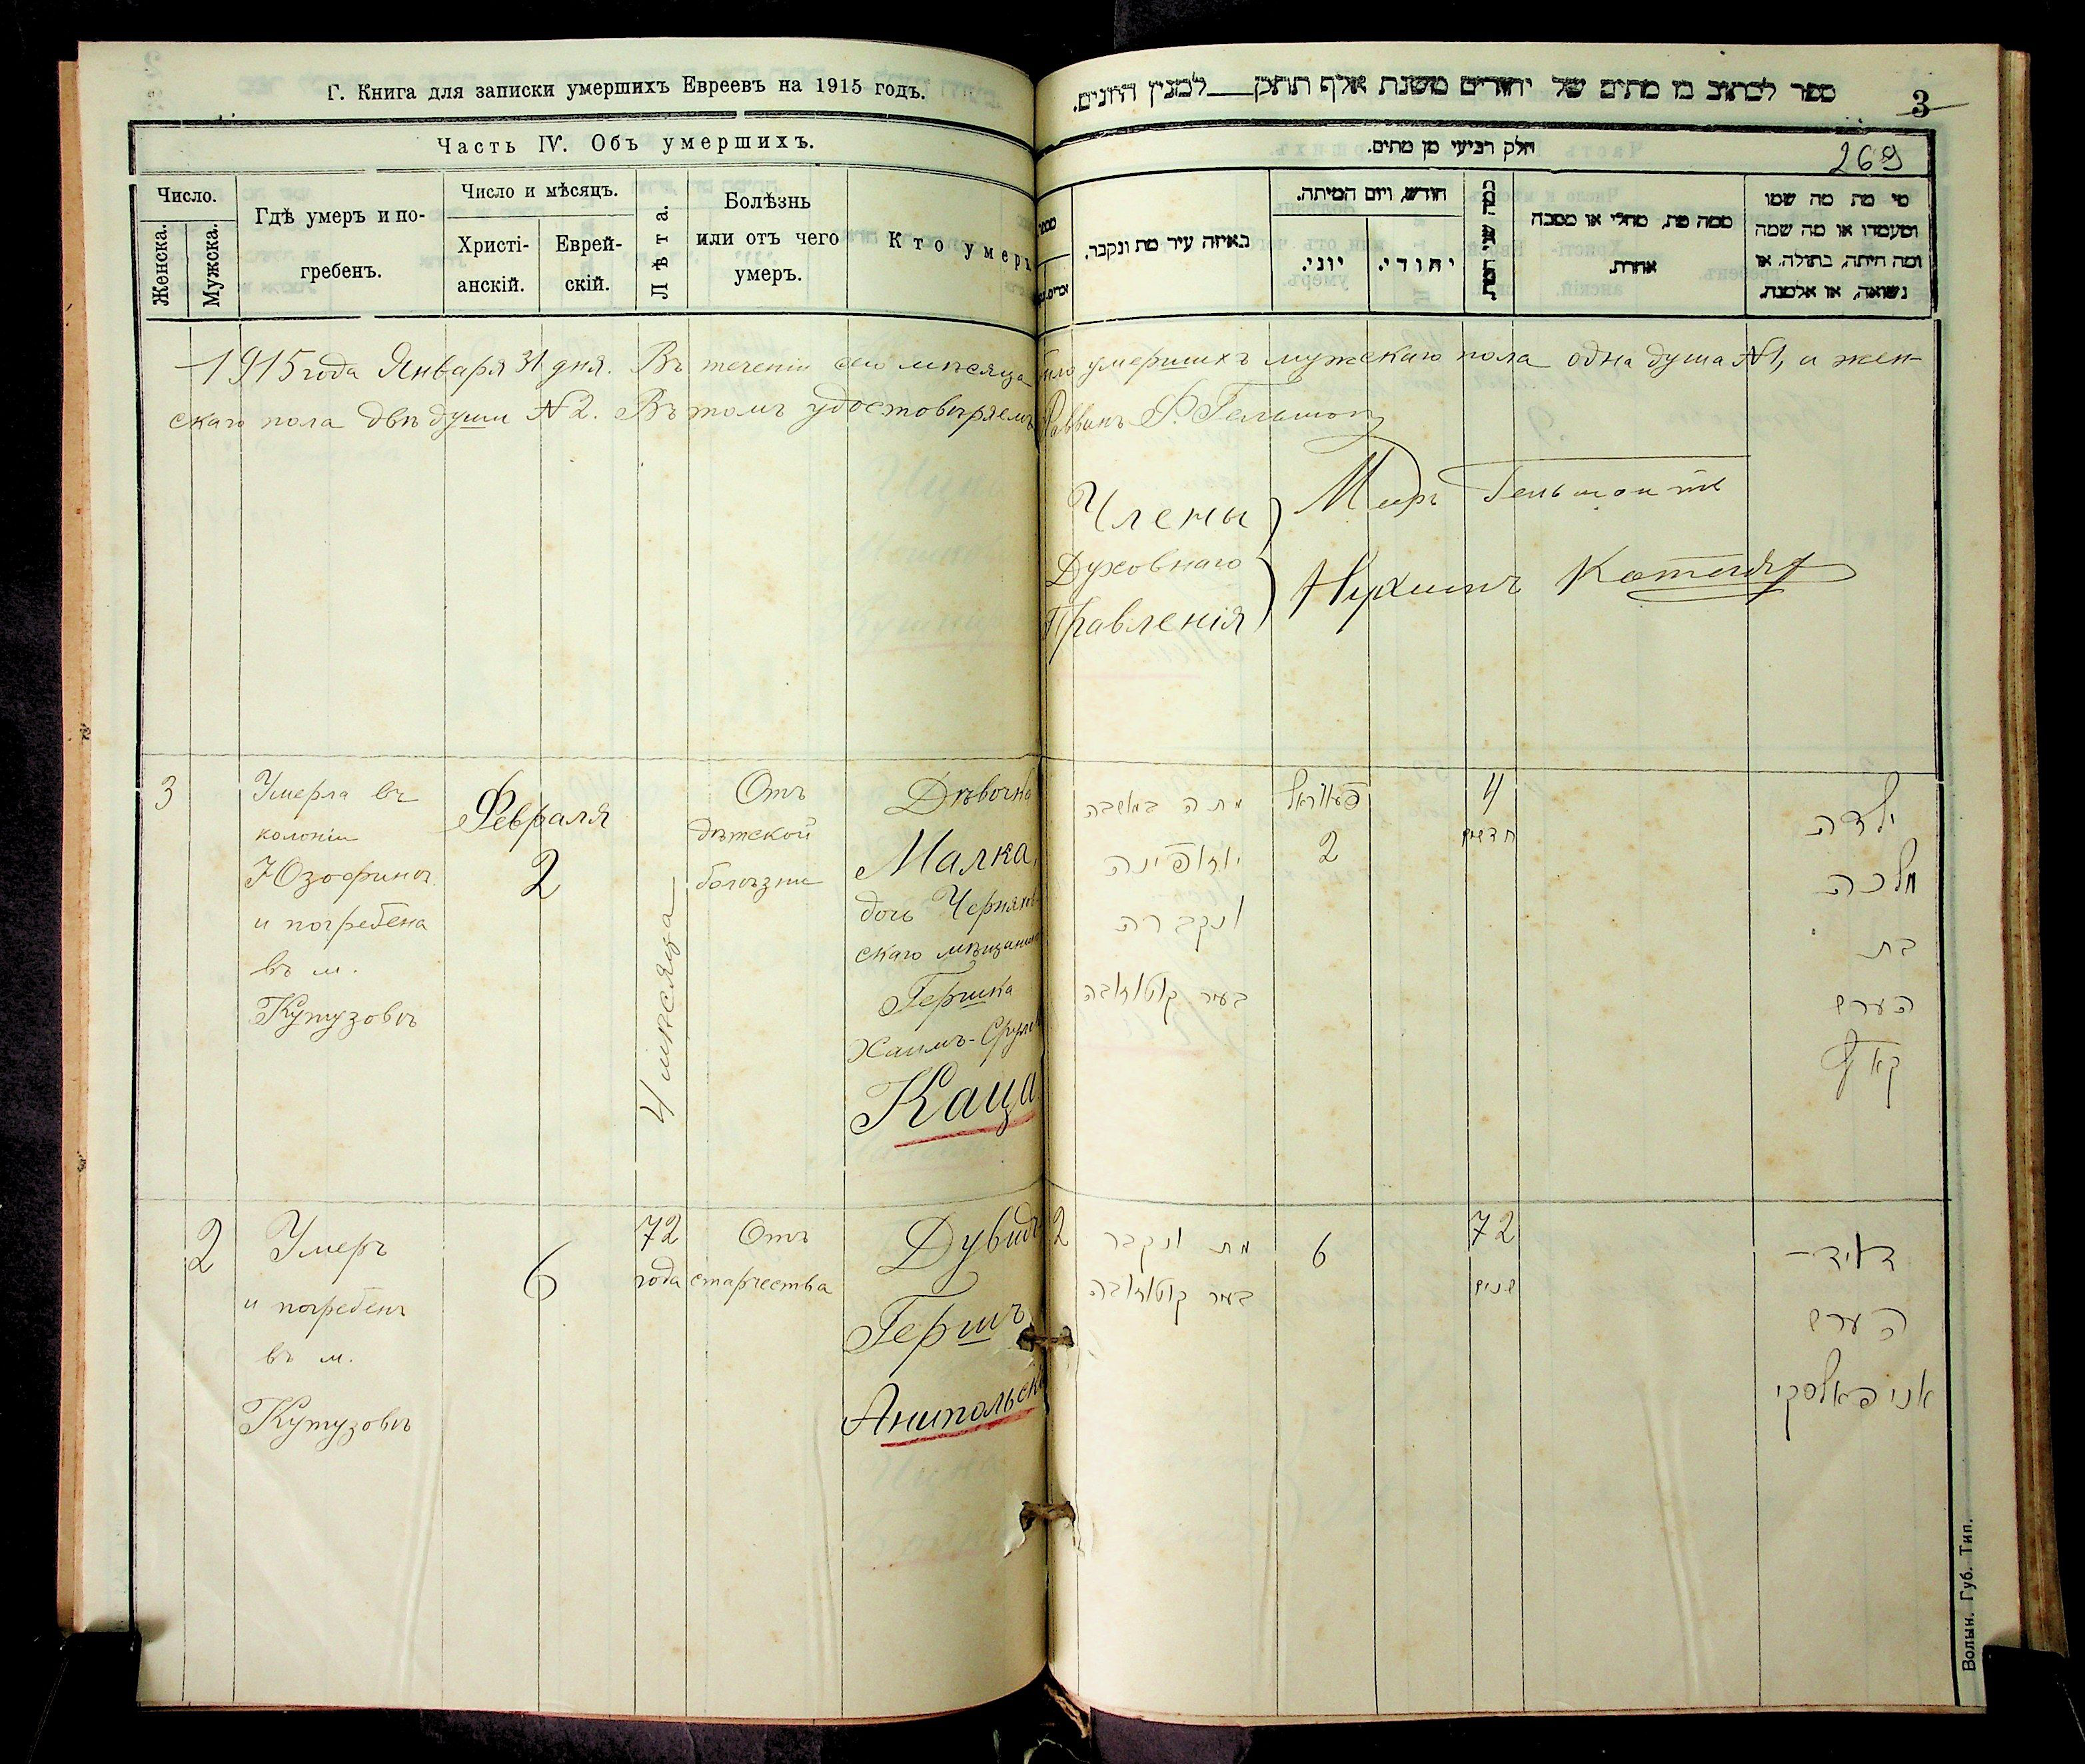 Г. Книга для записки умершихъ Евреевъ на 1915 годъ.
Часть IV. Объ умершихъ.
Число.
Женска.
Мужска.
Гдѣ умеръ и по-
гребенъ.
Число и мѣсяцъ.
Христі-
анскій.
Еврей-
скій.
Лѣта.
Болѣзнь
или отъ чего
умеръ.
Кто умеръ
ספר לכתוב בו מתים של יהודים משנת אלף תתק למנין היונים.
3
269
חלק רביעי מן מתים.
באיזה עיר מת ונקבר.
חודש, ויום המיתה.
יוני.
יהודי.
ממה מת, מחלי או מסבה
אחרת.
מי מת מה שמו
ומעמדו או מה שמה
ומה היתה, בתולה, או
נשואה, או אלמנה.
1915 года Января 31 дня. Въ теченіи сего мѣсяца было умершихъ мужскаго пола одна душа №1, а жен-
скаго пола двѣ души №2. Въ томъ удостовѣряемъ Раввинъ
Члены
Духовнаго
Правленія
Нухимъ
3
Умерла въ
колоніи
Юзофинъ
и погребена
въ м.
Кутузовъ
Февраля
2
4 мѣсяца
Отъ
дѣтской
болѣзни
Дѣвочка
Малка,
дочь Черняхов-
скаго мѣщанина
Гершка
Хаимъ-Срулев
Каца
מתה במושבה
יוזופינה
ונקברה
בעיר קוטוזובה
פעווראל
2
4
חדשים
ילדה
מלכה
בת
הערש
קאץ
2
Умеръ
и погребенъ
въ м.
Кутузовъ
6
72
года
Отъ
старчества
Дувидъ-
Гершъ
Анипольскі
2
מת ונקבר
בעיר קוטוזובה
6
72
שנים
דוד-
הערש
אניפאלסקי
Волын. Губ. Тип.